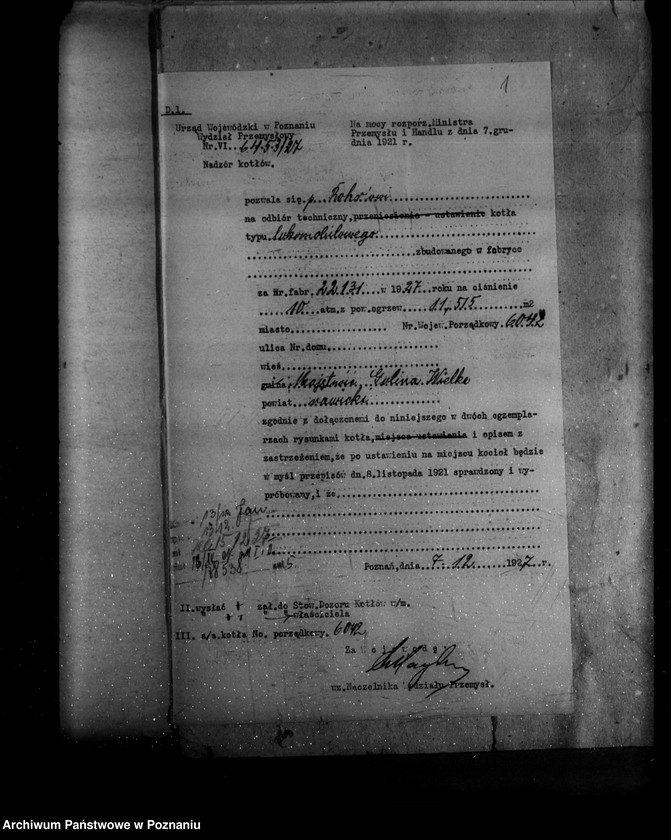 1
D.1.
Urząd Wojewódzki w Poznaniu
Wydział Przemysłowy
Nr.VI..6453/27
Nadzór kotłów.
Na mocy rozporz.Ministra
Przemysłu i Handlu z dnia 7.gru-
dnia 1921 r.
pozwala się p.
na odbiór techniczny,przeniesienie - ustawienie kotła
typu lokomobilowego
zbudowanego w fabryce
za Nr.fabr. 22131 w 1927 roku na ciśnienie
10 atm.z pow.ogrzew. 11,515 m2
miasto Nr.Wojew.Porządkowy. 6042
ulica Nr.domu
wieś
gmina, Golina Wielka
powiat rawicki
zgodnie z dołączonemi do niniejszego w dwóch egzempla-
rzach rysunkami kotła,miejsca ustawienia i opisem z
zastrzeżeniem,że po ustawieniu na miejscu kocioł będzie
w myśl przepisów dn.8.listopada 1921 sprawdzony i wy-
próbowany,i że
Poznań,dnia 7.12. 1927 r.
II.wysłać zał.do Stow.Dozoru Kotłów w/m.
" właściciela
III. a/a.kotła No. porządkowy. 6042
Za Wojewodę
wz.Naczelnika Wydziału Przemysł.
Archiwum Państwowe w Poznaniu